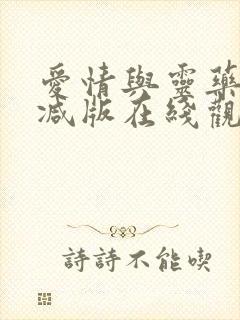 愛情與靈藥
減版在綫觀
詩詩不能喫